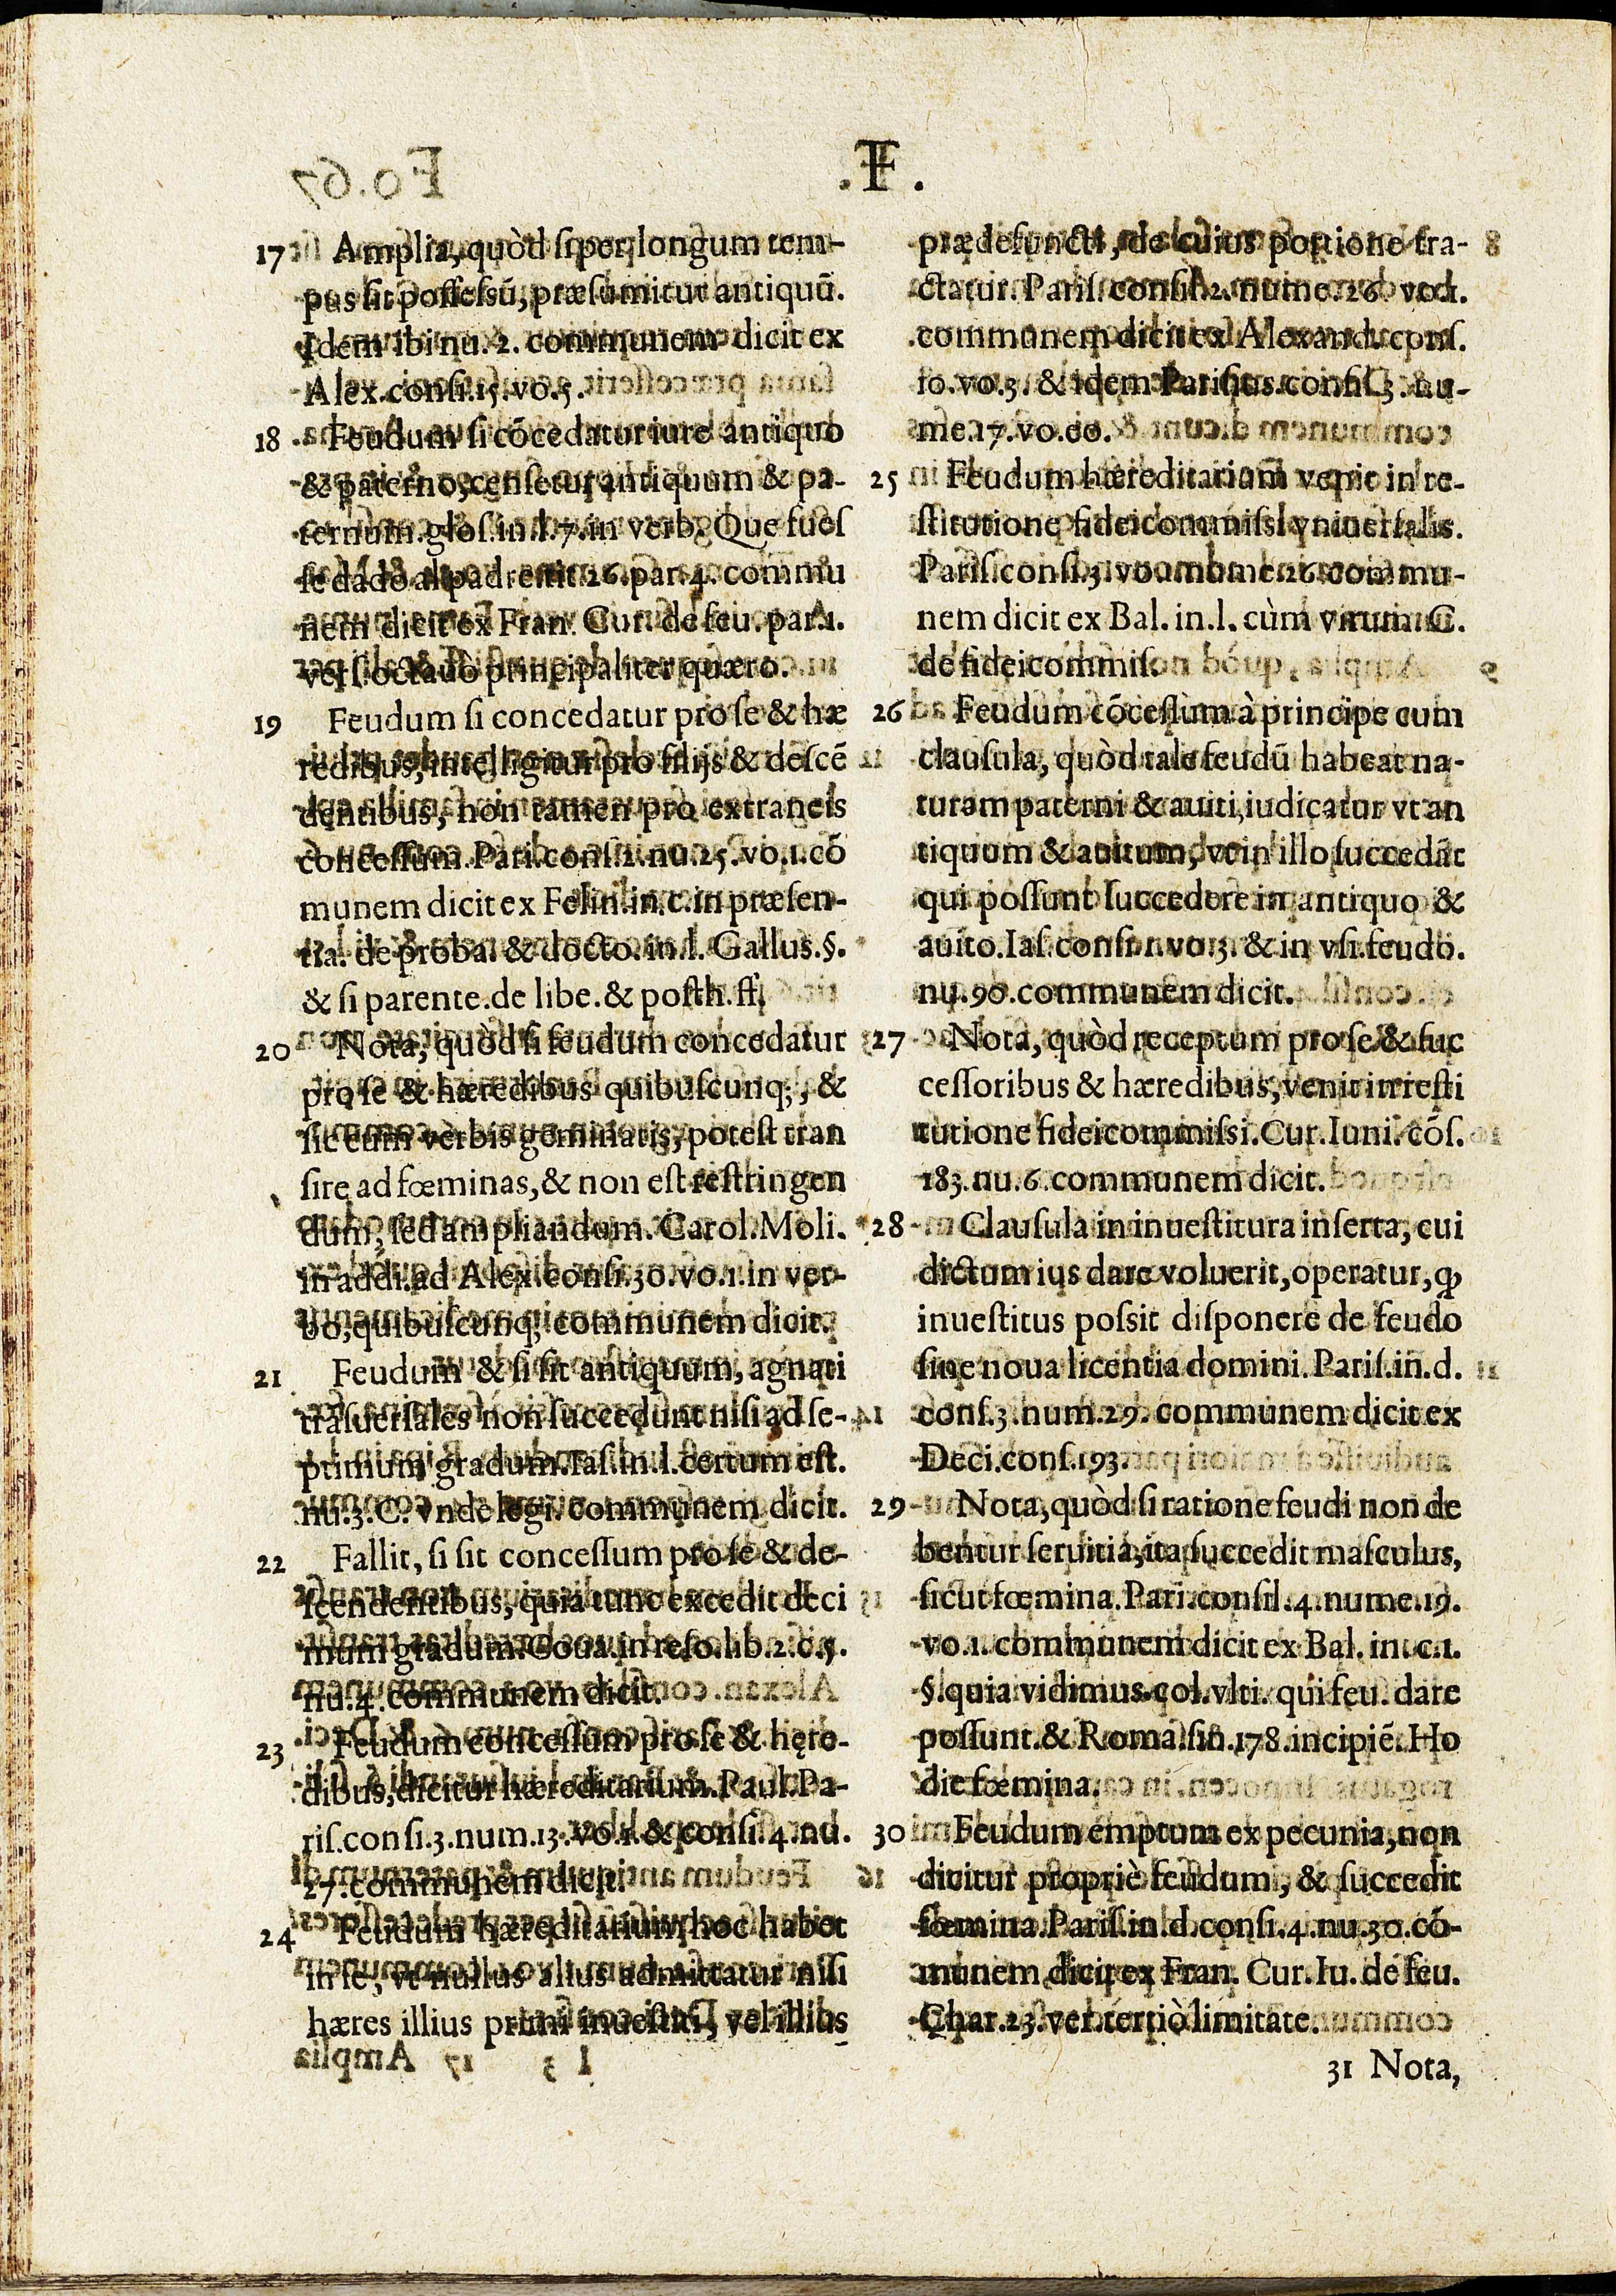 .F.
17 Amplia, quòd si per longum tem-
pus sit possessū, præsumitur antiquū.
Idem ibi nu. 2. communem dicit ex
Alex. consi. 15. vo. 5.
18 Feudum si cōcedatur iure antiquo
& paterno, censetur antiquum & pa-
ternum. glos. in. l. 7. in verb. Que fues
se dado al padre. tit. 26. par. 4. commu
nem dicit ex Fran. Cur. de feu. par. 1.
vers. octauò principaliter quæro.
19 Feudum si concedatur pro se & hæ
redibus, intelligitur pro filijs & descē
dentibus, non tamen pro extraneis
concessum. Pari. consi. 2. nu. 25. vo. 1. cō
munem dicit ex Felin. in. c. in præsen-
tia. de proba. & docto. in. l. Gallus. §.
& si parente. de libe. & posth. ff.
20 Nota, quòd si feudum concedatur
pro se & hæredibus quibuscunq;, &
sic cum verbis geminatis, potest tran
sire ad fœminas, & non est restringen
dum, sed ampliandum. Carol. Moli.
in addi. ad Alex. consi. 30. vo. 1. in ver-
bo, quibuscunq; communem dicit.
21 Feudum & si sit antiquum, agnati
trāsuersales non succedunt nisi ad se-
ptimum gradum. Ias. in. l. certum est.
nu. 3. C. vnde legi. communem dicit.
22 Fallit, si sit concessum pro se & de-
scendentibus, quia tunc excedit deci
mum gradum. Coua. in reso. lib. 2. c. 5.
nu. 4. communem dicit.
23 Feudum concessum pro se & hęre-
dibus, dicitur hæreditarium. Paul. Pa-
ris. consi. 3. num. 13. vo. 1. & consi. 4. nu.
27. communem dicit.
24 Feudum hæreditarium, hoc habet
in se, vt nullus alius admittatur nisi
hæres illius primi inuestiti, vel illius
prædefuncti, de cuius portione tra-
ctatur. Paris. consil. 2. nume. 26. vo. 1.
communem dicit ex Alexand. cons.
10. vo. 3. & idem Parisius. consil. 3. nu-
me. 17. vo. eo.
25 Feudum hæreditarium venit in re-
stitutione fideicommissi vniuersalis.
Paris. consi. 3. vo. 1. nume. 26. commu-
nem dicit ex Bal. in. l. cùm virum. C.
de fideicommis.
26 Feudum cōcessum à principe cum
clausula, quòd tale feudū habeat na-
turam paterni & auiti, iudicatur vt an
tiquum & auitum, vt in illo succedāt
qui possunt succedere in antiquo &
auito. Ias. consi. 1. vo. 3. & in vsi. feudo.
nu. 90. communem dicit.
27 Nota, quòd receptum pro se & suc
cessoribus & hæredibus, venit in resti
tutione fideicommissi. Cur. Iuni. cōs.
183. nu. 6. communem dicit.
28 Clausula in inuestitura inserta, cui
dictum ius dare voluerit, operatur, ꝙ
inuestitus possit disponere de feudo
sine noua licentia domini. Paris. in. d.
cons. 3. num. 29. communem dicit ex
Deci. cons. 193.
29 Nota, quòd si ratione feudi non de
bentur seruitia, ita succedit masculus,
sicut fœmina. Pari. consil. 4. nume. 19.
vo. 1. communem dicit ex Bal. in. c. 1.
§. quia vidimus. col. vlti. qui feu. dare
possunt. & Roma. sin. 178. incipiē. Ho
die fœmina.
30 Feudum emptum ex pecunia, non
dicitur propriè feudum, & succedit
fœmina. Paris. in. d. consi. 4. nu. 30. cō-
munem dicit ex Fran. Cur. Iu. de feu.
Char. 23. ver. tertiò limitate.
31 Nota,